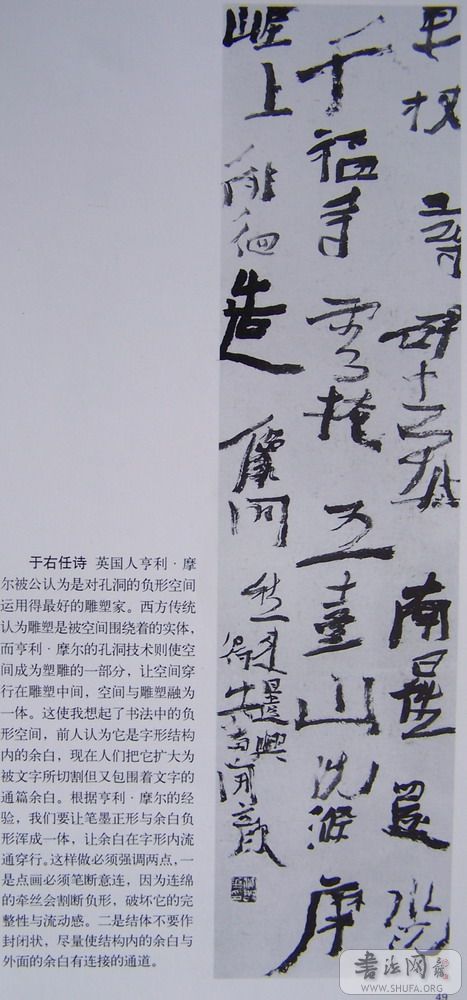 曳杖尋碑去城南日往還水沉
千福寺雲掩五臺山洗滌摩
崖上徘徊造像间愁興
得開顏
于右任诗 英国人亨利·摩
尔被公认为是对孔洞的负形空间
运用得最好的雕塑家。西方传统
认为雕塑是被空间围绕着的实体,
而亨利·摩尔的孔洞技术则使空
间成为塑雕的一部分,让空间穿
行在雕塑中间,空间与雕塑融为
一体。这使我想起了书法中的负
形空间,前人认为它是字形结构
内的余白,现在人们把它扩大为
被文字所切割但又包围着文字的
通篇余白。根据亨利·摩尔的经
验,我们要让笔墨正形与余白负
形浑成一体,让余白在字形内流
通穿行。这样做必须强调两点,一
是点画必须笔断意连,因为连绵
的牵丝会割断负形,破坏它的完
整性与流动感。二是结体不要作
封闭状,尽量使结构内的余白与
外面的余白有连接的通道。
书法网
WWW.SHUFA.ORG
49